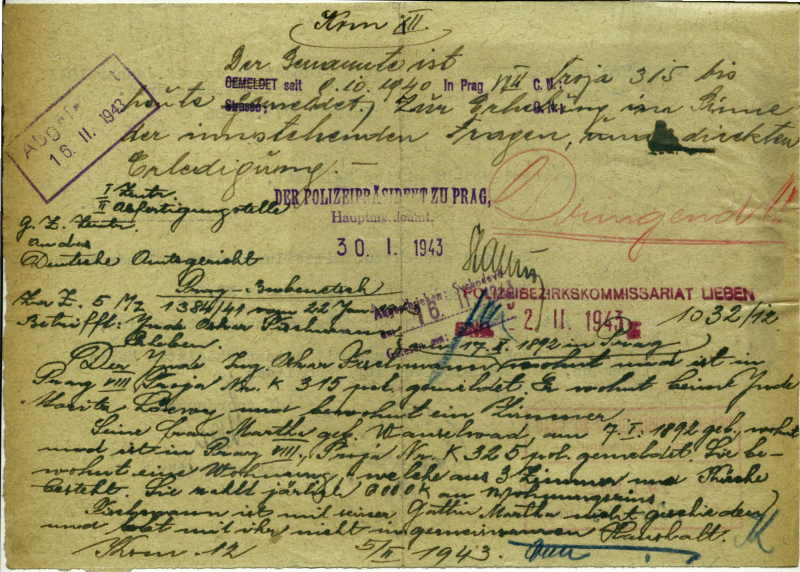 Kom XII.
Der Genannte ist
GEMELDET seit 8.10.1940 In Prag VIII C. N. Troja 315 bis
Strasse: O. N.
heute gemeldet. Zur Erhebung im Sinne
der innstehenden Fragen, und direkten
Erledigung. -
16. II. 1943
I Zentr.
II Abfertigungstelle
DER POLIZEIPRÄSIDENT ZU PRAG,
30. I. 1943
Dringend!
G. Z. Zentr.
An das
Deutsche Amtsgericht
Prag - Bubenetsch
POLIZEIBEZIRKSKOMMISSARIAT LIEBEN
- 2. II. 1943
1032/12
16. II. 1943
Zur Z. 5 Mz 1384/41 vom 22
Betrifft: Jude Oskar Fischmann
17. X. 1892 in Prag
Der Jude Ing. Oskar Fischmann wohnt und ist in
Prag VIII Troja Nr. K 315 pol. gemeldet. Er wohnt beim Jude
Moritz Loewy und bewohnt ein Zimmer
Seine Frau Martha geb. am 7. I. 1892 geb., wohnt
und ist in Prag VIII., Troja Nr. K 325 pol. gemeldet. Sie be-
wohnt eine Wohnung, welche aus 3 Zimmer und Küche
besteht. Sie zahlt K an Wohnungszins.
Fischmann ist mit seiner Gattin Martha nicht geschieden
und mit ihr nicht in gemeinsamen Haushalt.
Kom 12 5/II 1943.